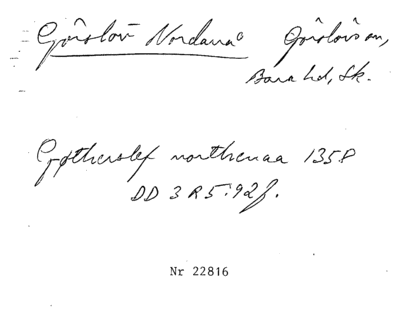 Görslöv Nordanå Görslövs sn,
Bara hd, Sk.
Gøtherslef northenaa 1358
DD 3 R 5:92 f.
Nr 22816